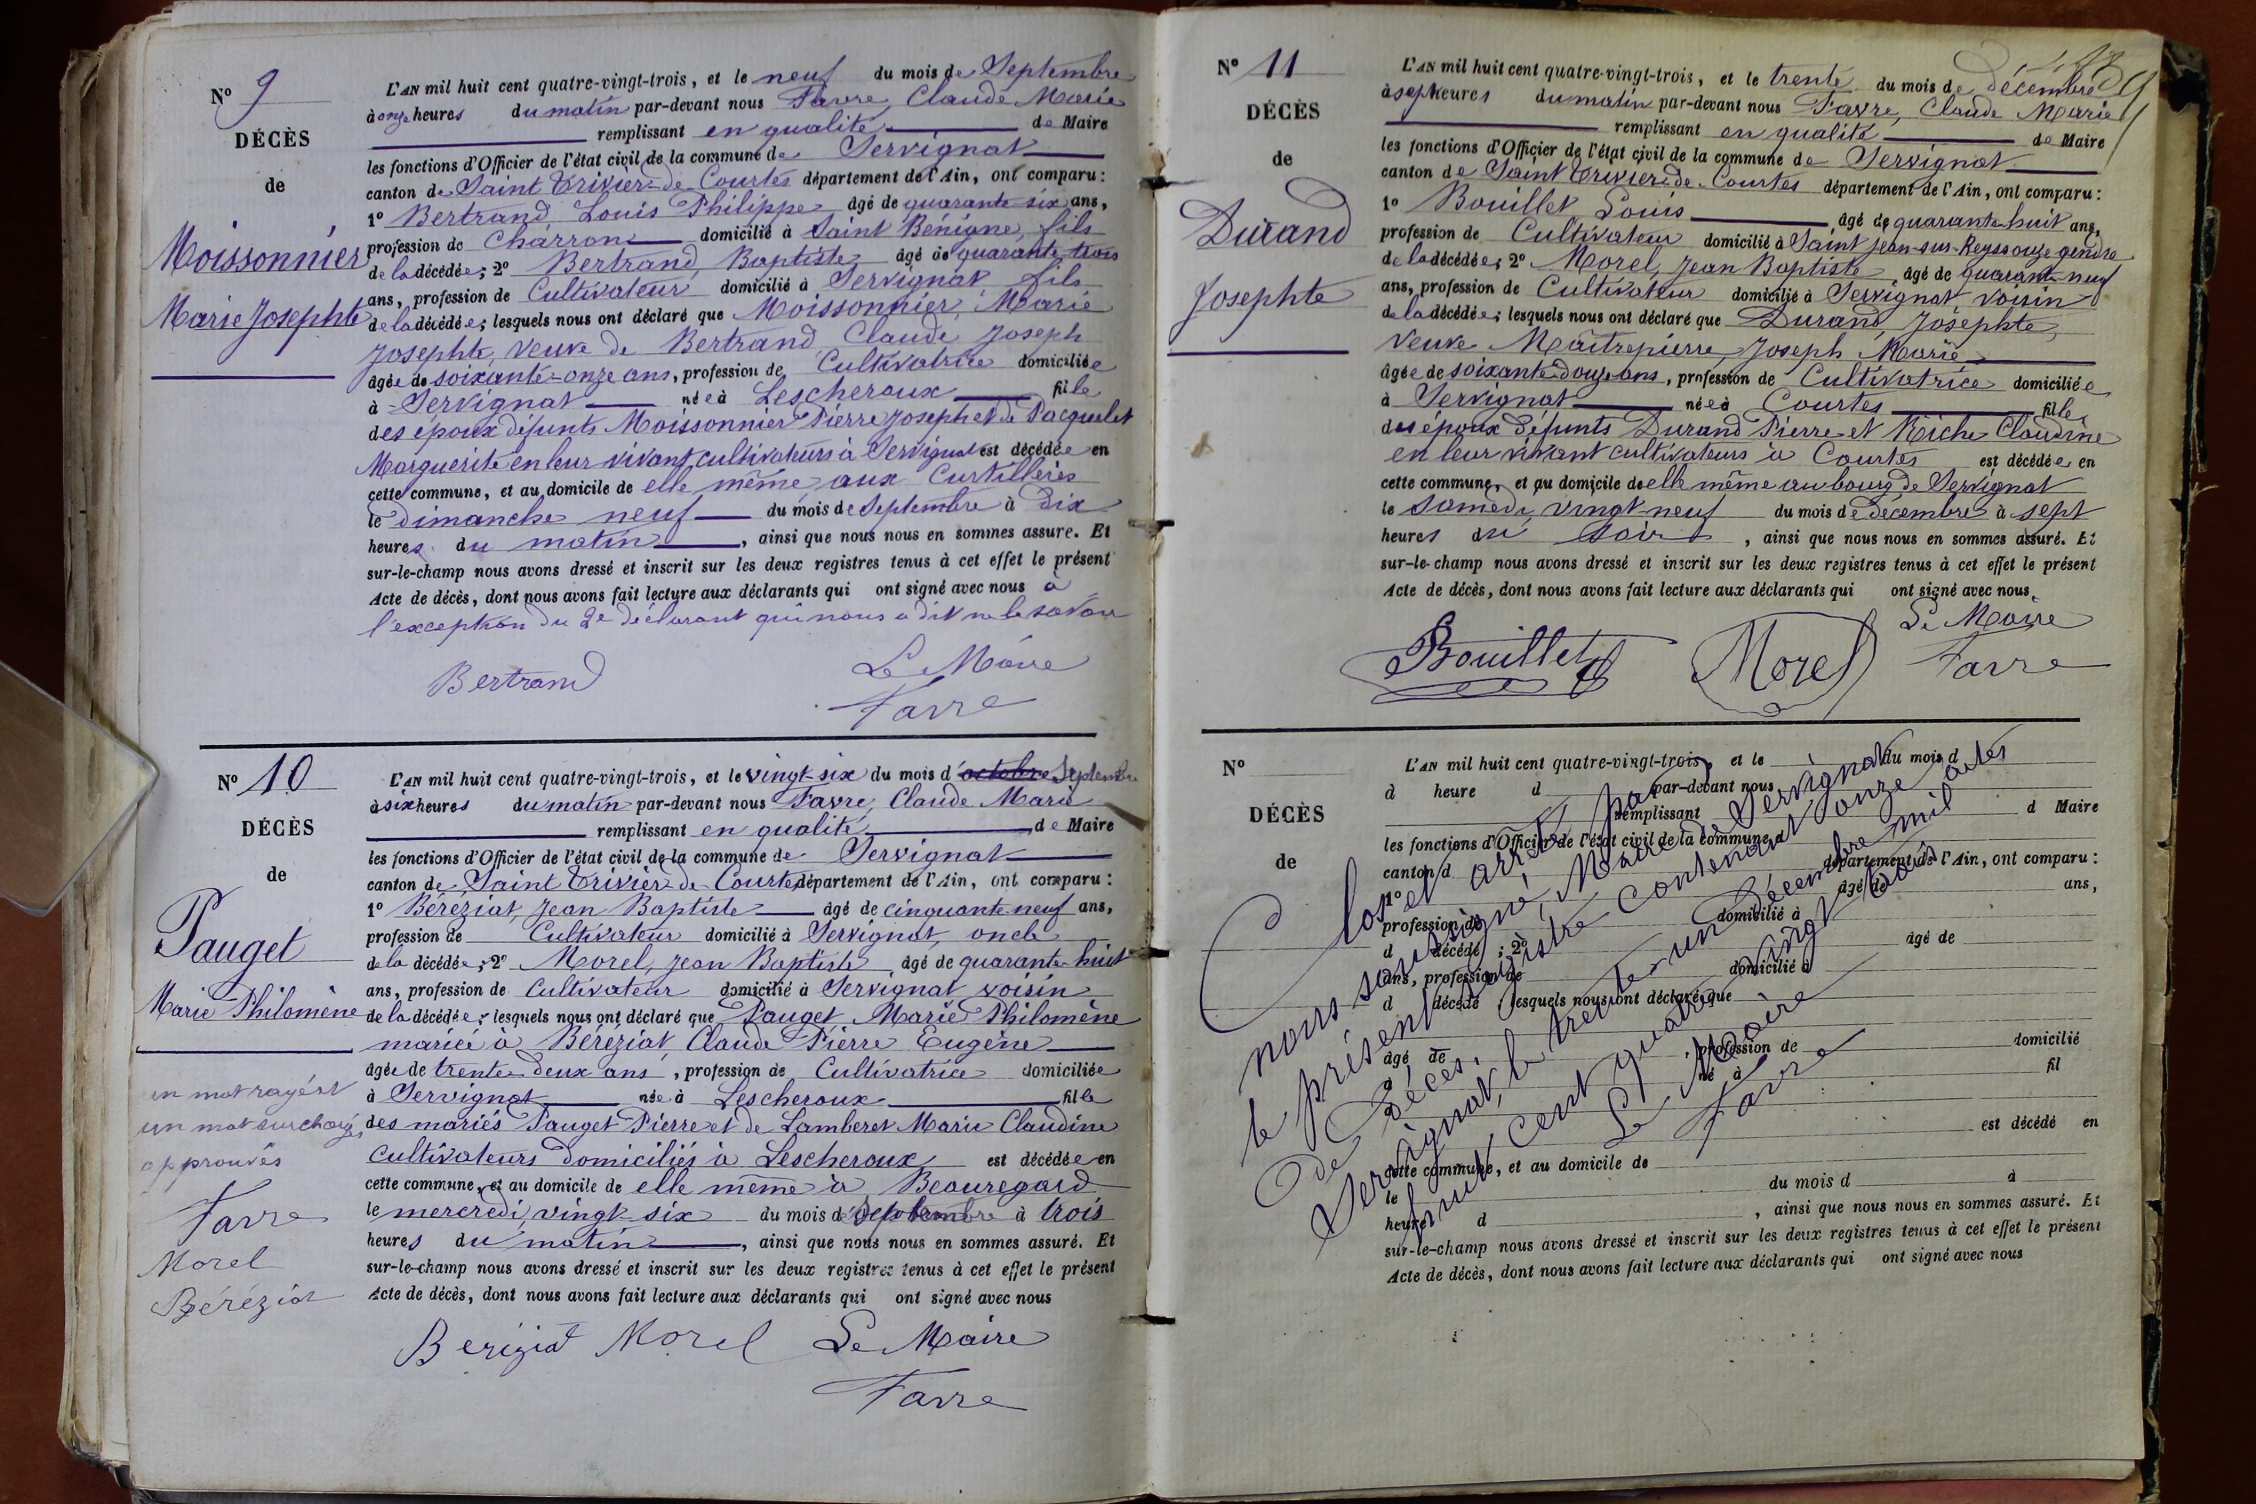 N° 9
DÉCÈS
de
Moissonnier
Marie Josephte
L'AN mil huit cent quatre-vingt-trois, et le neuf du mois de Septembre
à onze heures du matin par-devant nous Favre, Claude Marie
remplissant en qualité de Maire
les fonctions d'Officier de l'état civil de la commune de Servignat
canton de Saint Trivier-de-Courtes département de l'Ain, ont comparu :
1° Bertrand Louis Philippe âgé de quarante-six ans,
profession de Charron domicilié à Saint Bénigne, fils
de la décédée ; 2° Bertrand, Baptiste âgé de quarante-trois
ans, profession de Cultivateur domicilié à Servignat fils
de la décédée ; lesquels nous ont déclaré que Moissonnier, Marie
Josephte, veuve de Bertrand Claude Joseph
âgée de soixante-onze ans, profession de Cultivatrice domiciliée
à Servignat née à Lescheroux fille
des époux défunts Moissonnier Pierre Joseph et de Pacquelet
Marguerite en leur vivant cultivateurs à Servignat est décédée en
cette commune, et au domicile de elle même aux Curtillères
le dimanche neuf du mois de Septembre à dix
heures du matin, ainsi que nous nous en sommes assuré. Et
sur-le-champ nous avons dressé et inscrit sur les deux registres tenus à cet effet le présent
Acte de décès, dont nous avons fait lecture aux déclarants qui ont signé avec nous à
l'exception du 2e déclarant qui nous a dit ne le savoir
Bertrand
Le Maire
Favre
N° 10
DÉCÈS
de
Pauget
Marie Philomène
un mot rayé et
un mot surchargé,
approuvés
Favre
Morel
Béréziat
L'AN mil huit cent quatre-vingt-trois, et le vingt-six du mois d'octobre Septembre
à six heures du matin par-devant nous Favre, Claude Marie
remplissant en qualité de Maire
les fonctions d'Officier de l'état civil de la commune de Servignat
canton de Saint Trivier-de-Courtes département de l'Ain, ont comparu :
1° Béréziat, Jean Baptiste âgé de cinquante-neuf ans,
profession de Cultivateur domicilié à Servignat, oncle
de la décédée ; 2° Morel, Jean Baptiste âgé de quarante-huit
ans, profession de Cultivateur domicilié à Servignat voisin
de la décédée ; lesquels nous ont déclaré que Pauget, Marie Philomène
mariée à Béréziat, Claude Pierre Eugène
âgée de trente-deux ans, profession de Cultivatrice domiciliée
à Servignat née à Lescheroux fille
des mariés Pauget Pierre et de Lamberet Marie Claudine
Cultivateurs domiciliés à Lescheroux est décédée en
cette commune, et au domicile de elle même à Beauregard
le mercredi, vingt-six du mois de Septembre à trois
heures du matin, ainsi que nous nous en sommes assuré. Et
sur-le-champ nous avons dressé et inscrit sur les deux registres tenus à cet effet le présent
Acte de décès, dont nous avons fait lecture aux déclarants qui ont signé avec nous
Béréziat Morel Le Maire
Favre
N° 11
DÉCÈS
de
Durand
Josephte
L'AN mil huit cent quatre-vingt-trois, et le trente du mois de décembre
à sept heures du matin par-devant nous Favre, Claude Marie
remplissant en qualité de Maire
les fonctions d'Officier de l'état civil de la commune de Servignat
canton de Saint Trivier-de-Courtes département de l'Ain, ont comparu :
1° Bouillet Louis âgé de quarante-huit ans,
profession de Cultivateur domicilié à Saint Jean-sur-Reyssouze gendre
de la décédée ; 2° Morel, Jean Baptiste âgé de quarante-neuf
ans, profession de Cultivateur domicilié à Servignat voisin
de la décédée ; lesquels nous ont déclaré que Durand, Josephte,
veuve Maîtrepierre Joseph Marie
âgée de soixante-douze ans, profession de Cultivatrice domiciliée
à Servignat née à Courtes fille
des époux défunts Durand Pierre et Riche Claudine
en leur vivant cultivateurs à Courtes est décédée en
cette commune, et au domicile de elle même au bourg de Servignat
le samedi, vingt-neuf du mois de décembre à sept
heures du soir, ainsi que nous nous en sommes assuré. Et
sur-le-champ nous avons dressé et inscrit sur les deux registres tenus à cet effet le présent
Acte de décès, dont nous avons fait lecture aux déclarants qui ont signé avec nous
Bouillet Morel Le Maire
Favre
N°
DÉCÈS
de
L'AN mil huit cent quatre-vingt-trois, et le du mois d
à heure d par-devant nous
remplissant d Maire
les fonctions d'Officier de l'état civil de la commune
canton d département de l'Ain, ont comparu :
1° âgé de ans,
profession de domicilié à
d décédé ; 2° âgé de
ans, profession de domicilié à
d décédé lesquels nous ont déclaré que
âgé de , profession de domicilié
à né à fil
est décédé en
cette commune, et au domicile de
le du mois d à
heure d , ainsi que nous nous en sommes assuré. Et
sur-le-champ nous avons dressé et inscrit sur les deux registres tenus à cet effet le présent
Acte de décès, dont nous avons fait lecture aux déclarants qui ont signé avec nous
Clos et arrêté par
nous soussigné, Maire de Servignat
le présent registre contenant onze actes
de Décès.
Servignat, le trente-un décembre mil
huit cent quatre vingt trois
Le Maire
Favre